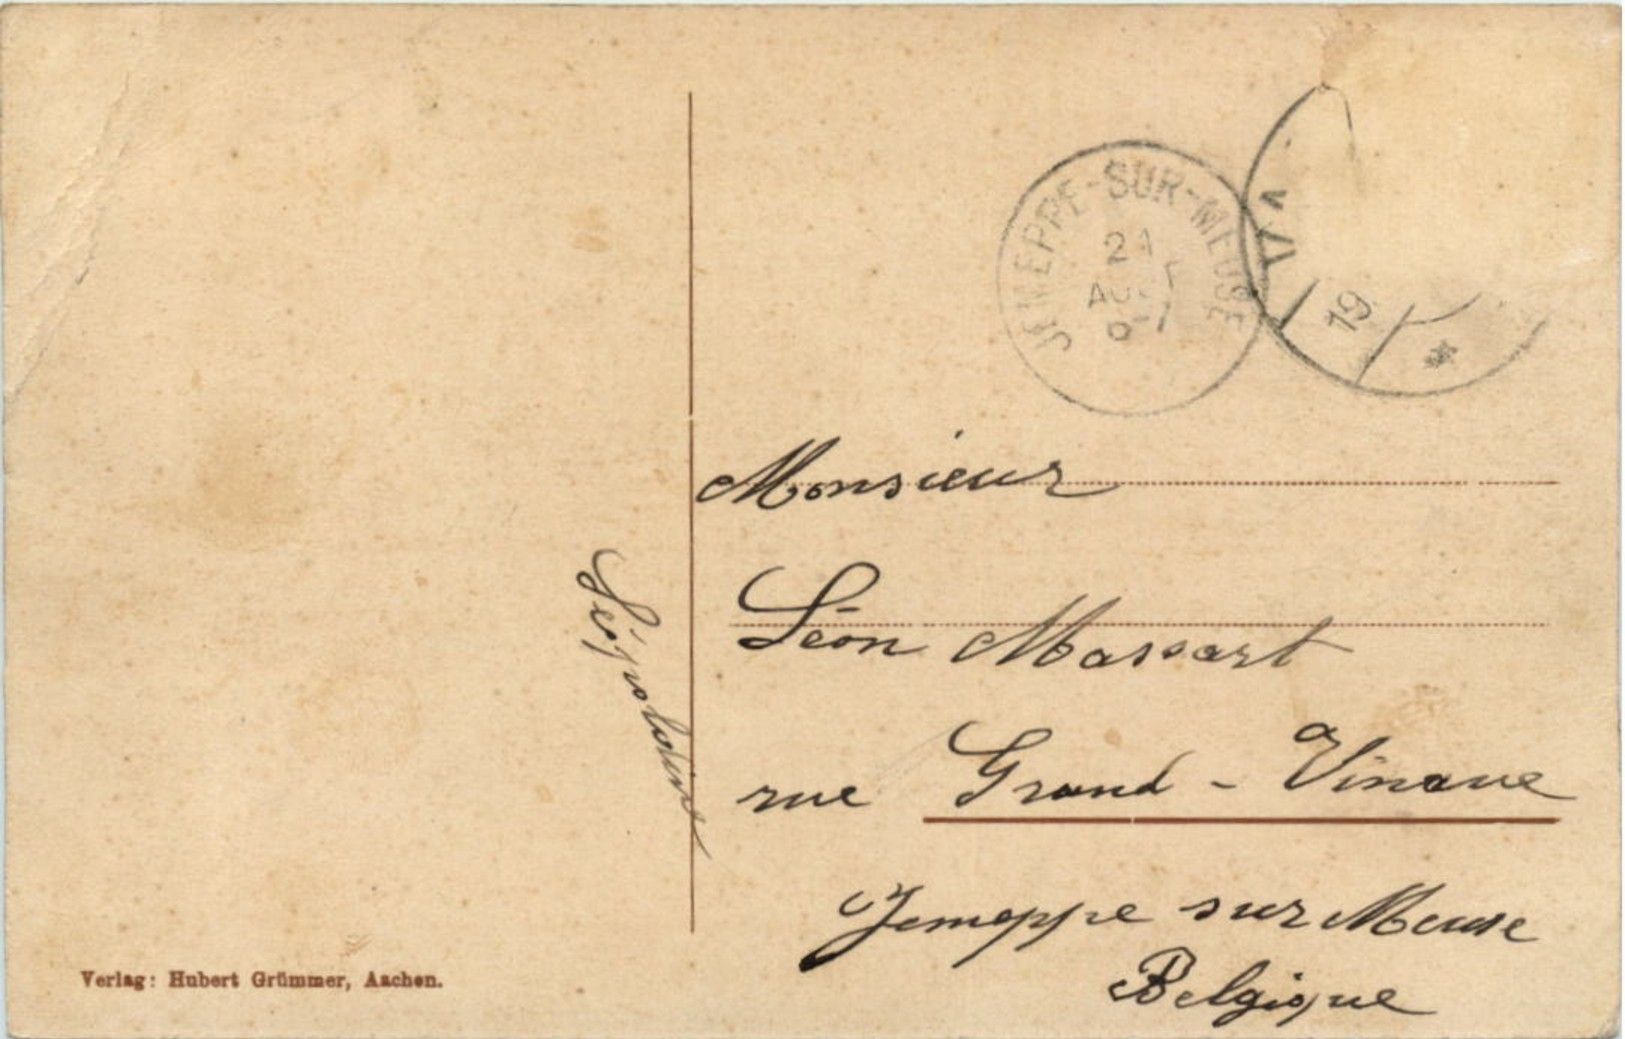 JEMEPPE-SUR-MEUSE
AOUT
19
*
Monsieur
Léon Massart
rue Grand-Vinave
Jemeppe sur Meuse
Belgique
Verlag: Hubert Grümmer, Aachen.